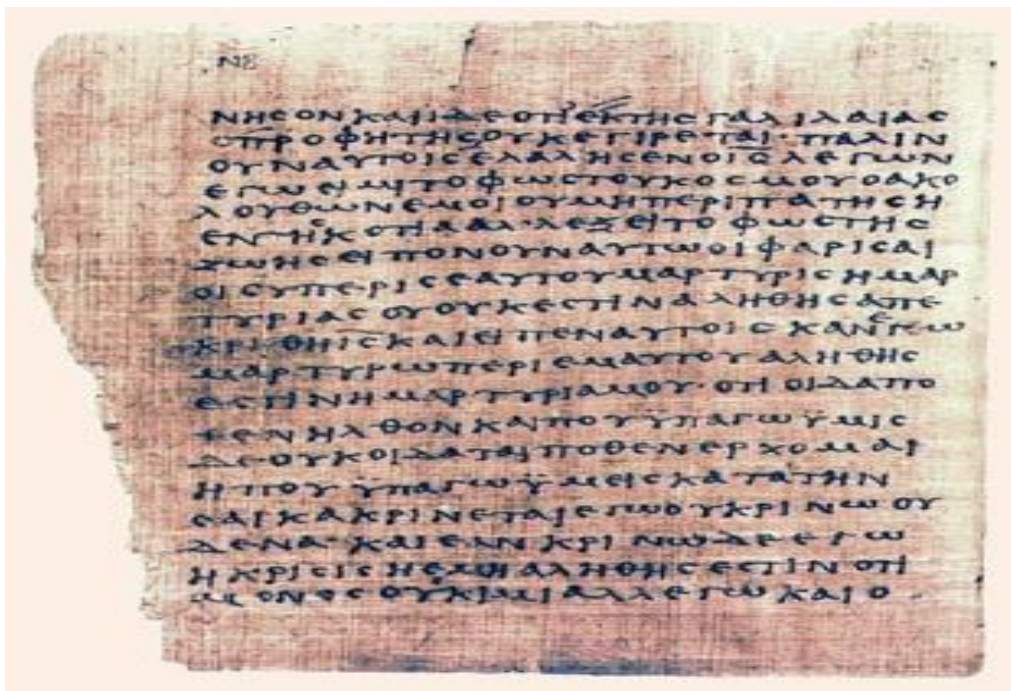 ΝΗ
ΝΗϹΟΝΚΑΙΙΔΕΟΤΙΕΚΤΗϹΓΑΛΙΛΑΙΑϹ
ΟΠΡΟΦΗΤΗϹΟΥΚΕΓΙΡΕΤΑΙ·ΠΑΛΙΝ
ΟΥΝΑΥΤΟΙϹΕΛΑΛΗϹΕΝΟΙ̅Ϲ̅ΛΕΓΩΝ
ΕΓΩΕΙΜΙΤΟΦΩϹΤΟΥΚΟϹΜΟΥΟΑΚΟ
ΛΟΥΘΩΝΕΜΟΙΟΥΜΗΠΕΡΙΠΑΤΗϹΗ
ΕΝΤΗϹΚΟΤΙΑΑΛΛΕΞΕΙΤΟΦΩϹΤΗϹ
ΖΩΗϹΕΙΠΟΝΟΥΝΑΥΤΩΟΙΦΑΡΙϹΑΙ
ΟΙϹΥΠΕΡΙϹΕΑΥΤΟΥΜΑΡΤΥΡΙϹΗΜΑΡ
ΤΥΡΙΑϹΟΥΟΥΚΕϹΤΙΝΑΛΗΘΗϹΑΠΕ
ΚΡΙΘΗΙ̅Ϲ̅ΚΑΙΕΙΠΕΝΑΥΤΟΙϹΚΑΝΕΓΩ
ΜΑΡΤΥΡΩΠΕΡΙΕΜΑΥΤΟΥΑΛΗΘΗϹ
ΕϹΤΙΝΗΜΑΡΤΥΡΙΑΜΟΥ·ΟΤΙΟΙΔΑΠΟ
ΘΕΝΗΛΘΟΝΚΑΙΠΟΥΫΠΑΓΩΫΜΙϹ
ΔΕΟΥΚΟΙΔΑΤΑΙΠΟΘΕΝΕΡΧΟΜΑΙ
ΗΠΟΥΫΠΑΓΩΫΜΕΙϹΚΑΤΑΤΗΝ
ϹΑΡΚΑΚΡΙΝΕΤΑΙΕΓΩΟΥΚΡΙΝΩΟΥ
ΔΕΝΑ·ΚΑΙΕΑΝΚΡΙΝΩΔΕΕΓΩ
ΗΚΡΙϹΙϹΗΕΜΗΑΛΗΘΗϹΕϹΤΙΝΟΤΙ
ΜΟΝΟϹΟΥΚΙΜΙΑΛΛΕΓΩΚΑΙΟ